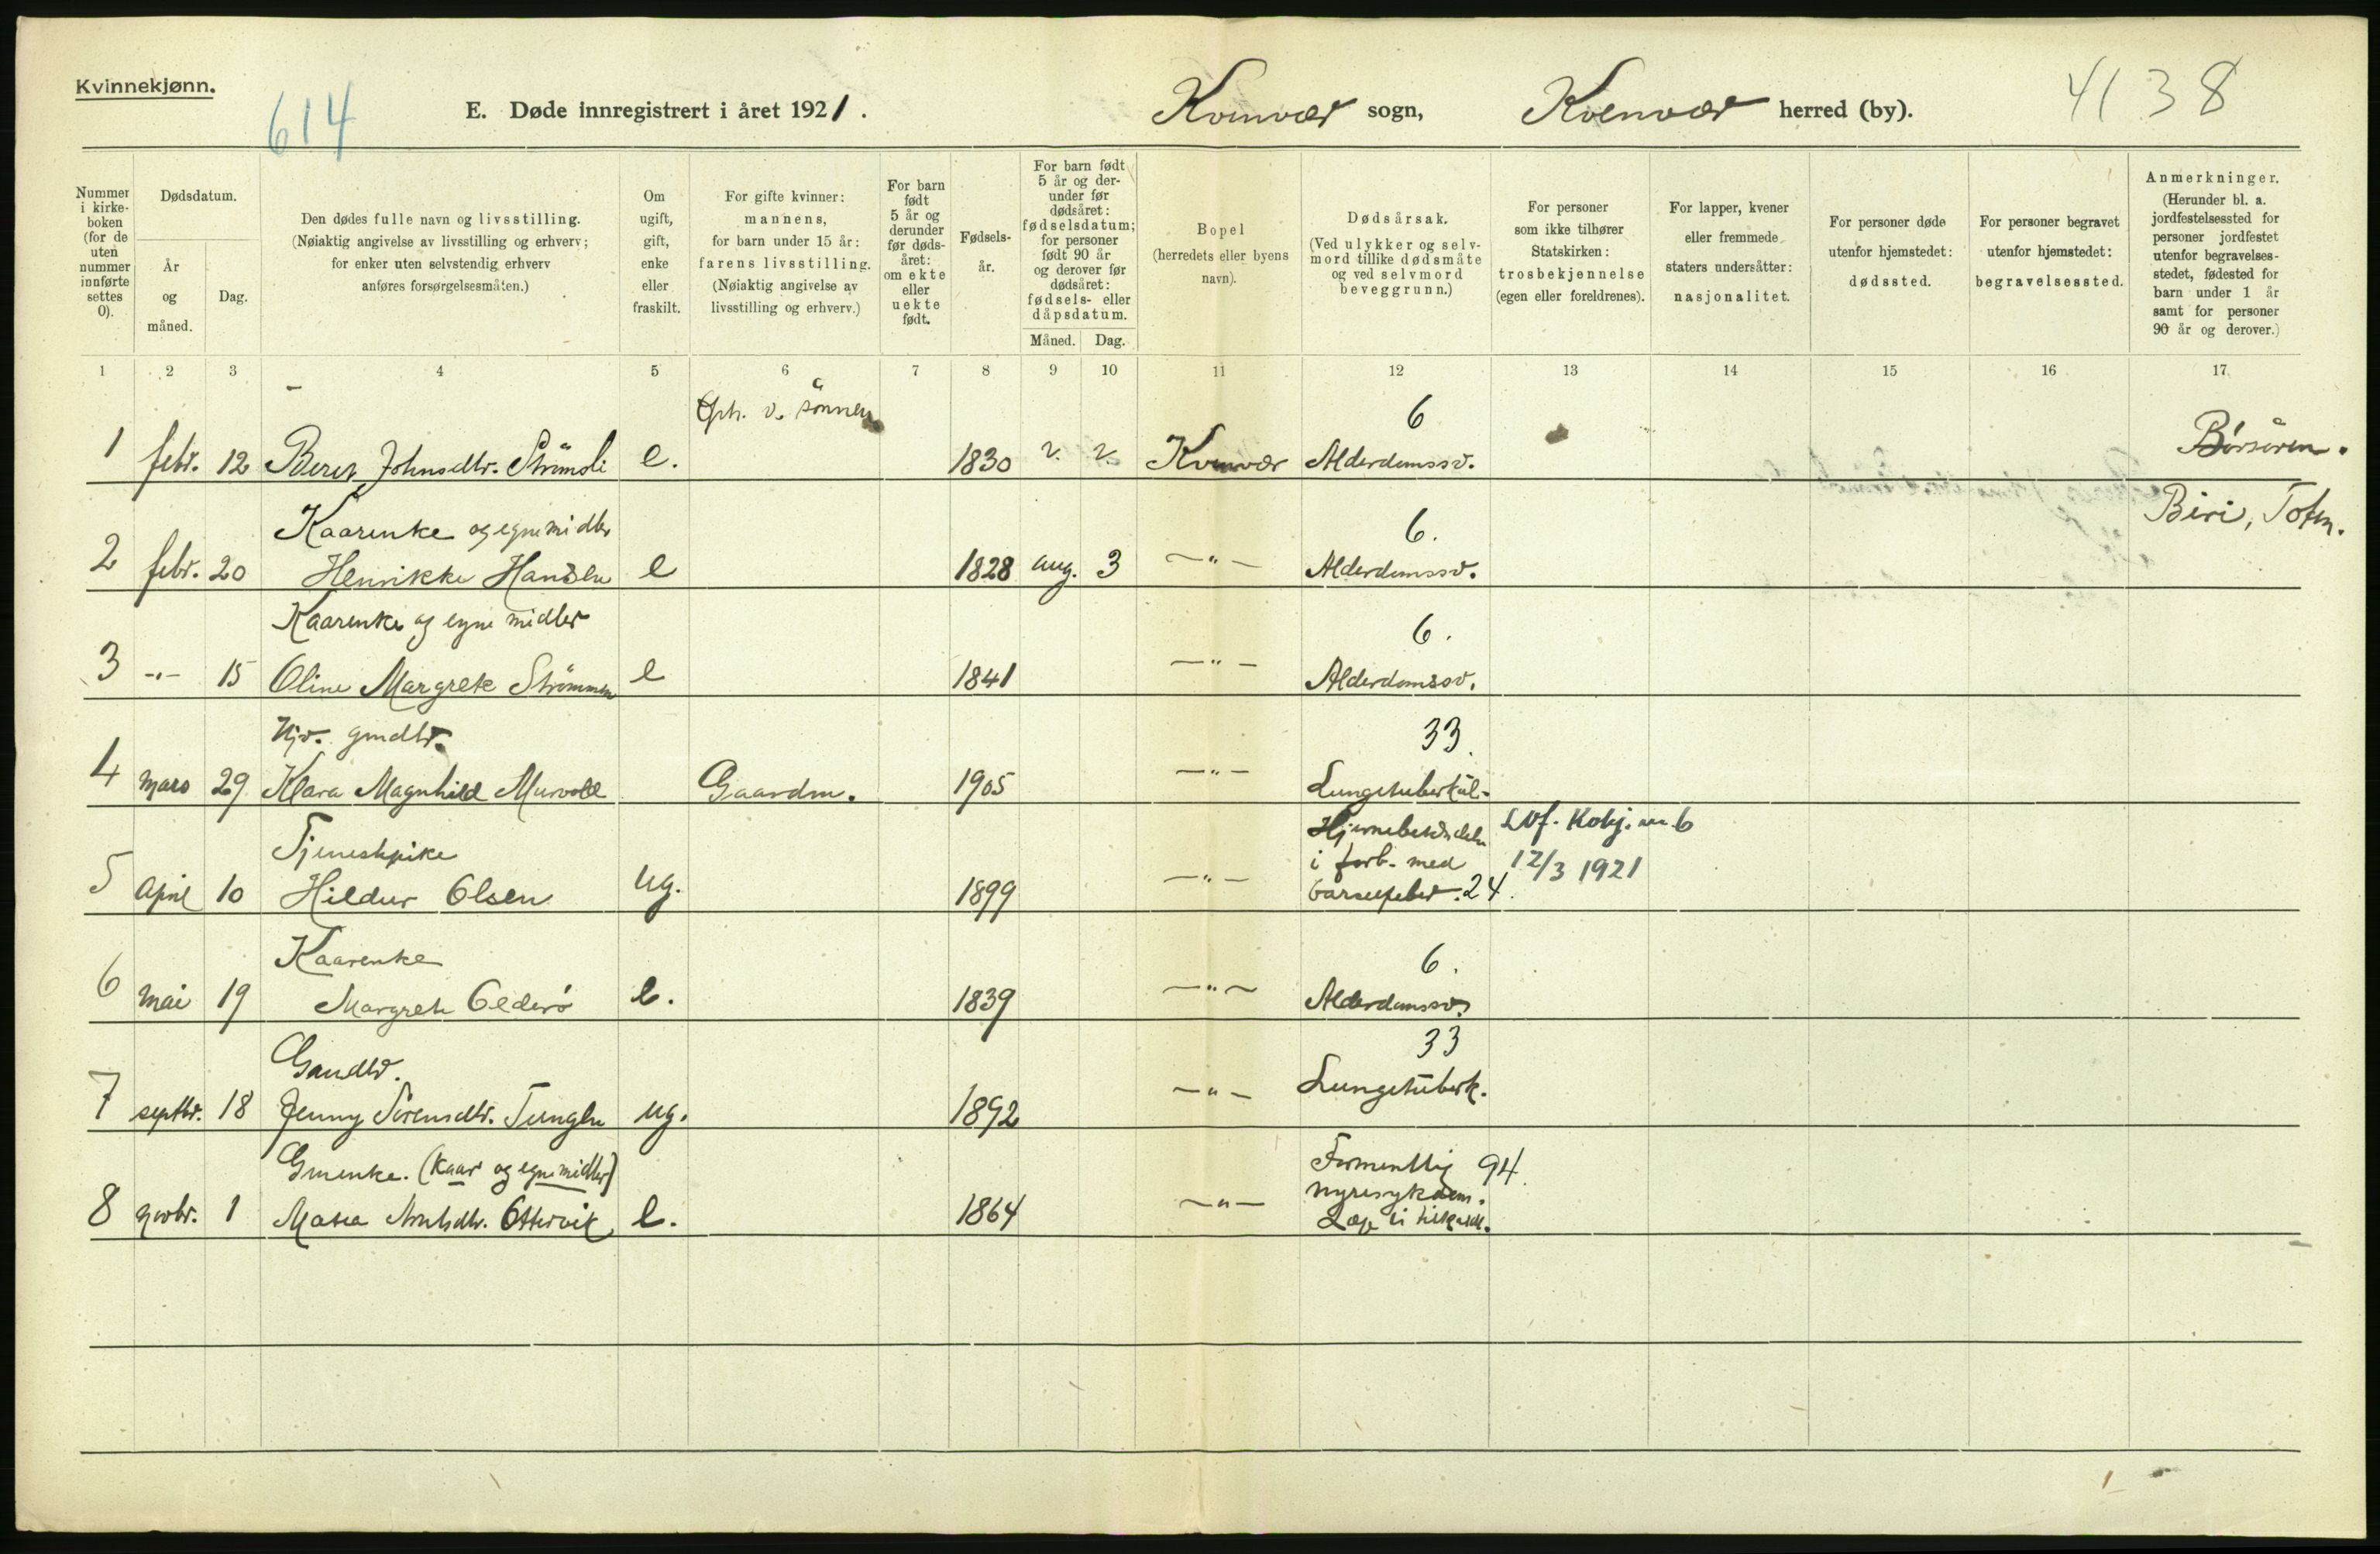 Kvinnekjønn.
614
E. Døde innregistrert i året 1921.
Kvenvær sogn, Kvenvær herred (by).
4138
Nummer i kirke-boken (for de uten nummer innførte settes 0).
Dødsdatum.
År og måned.
Dag.
Den dødes fulle navn og livsstilling.
(Nøiaktig angivelse av livsstilling og erhverv;
for enker uten selvstendig erhverv
anføres forsørgelsesmåten.)
Om ugift, gift, enke eller fraskilt.
For gifte kvinner:
mannens,
for barn under 15 år:
farens livsstilling.
(Nøiaktig angivelse av
livsstilling og erhverv.)
For barn født 5 år og derunder før døds-året: om ekte eller uekte født.
Fødsels-år.
For barn født 5 år og der-under før dødsåret: fødselsdatum; for personer født 90 år og derover før dødsåret: fødsels- eller dåpsdatum.
Måned. Dag.
Bopel
(herredets eller byens
navn).
Dødsårsak.
(Ved ulykker og selv-
mord tillike dødsmåte
og ved selvmord
beveggrunn.)
For personer
som ikke tilhører
Statskirken:
trosbekjennelse
(egen eller foreldrenes).
For lapper, kvener
eller fremmede
staters undersåtter:
nasjonalitet.
For personer døde
utenfor hjemstedet:
dødssted.
For personer begravet
utenfor hjemstedet:
begravelsessted.
Anmerkninger.
(Herunder bl. a.
jordfestelsessted for
personer jordfestet
utenfor begravelses-
stedet, fødested for
barn under 1 år
samt for personer
90 år og derover.)
1 2 3 4 5 6 7 8 9 10 11 12 13 14 15 16 17
v. sønnen 6
1 febr. 12 Beret Johnsdtr. Strömsli e. 1830 ?. ?. Kvenvær Alderdomssv. Börsören.
Kaarenke og egne midler 6. Biri, Toten.
2 febr. 20 Henrikke Hansen e 1828 aug. 3 —"— Alderdomssv.
Kaarenke og egne midler 6.
3 -"- 15 Oline Margrete Strömmen e 1841 —"— Alderdomssv.
Hjv. gmdtr. 33.
4 mars 29 Klara Magnhild Murvold Gaardm. 1905 —"— Lungetuberkul.
Tjenestpike
5 April 10 Hildur Olsen ug. 1899 —"— i forb. med barselfeber. 24.
12/3 1921
Kaarenke 6.
6 mai 19 Margrete Olderö e. 1839 —"— Alderdomssv.
Gmdtr. 33
7 septbr. 18 Jenny Sörensdtr. Tunglen ug. 1892 —"— Lungetuberk.
Gmenke. (Kaar og egne midler) Formentlig 94.
8 novbr. 1 Ottervik e. 1864 —"— nyresykdom.
Læge ei tilkaldt.